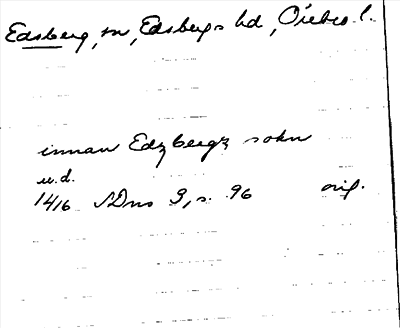 Edsberg, sn, Edsbergs hd, Örebro l.
innan Edzbergz sokn
u.d.
1416 SDns 3, s. 96 orig.